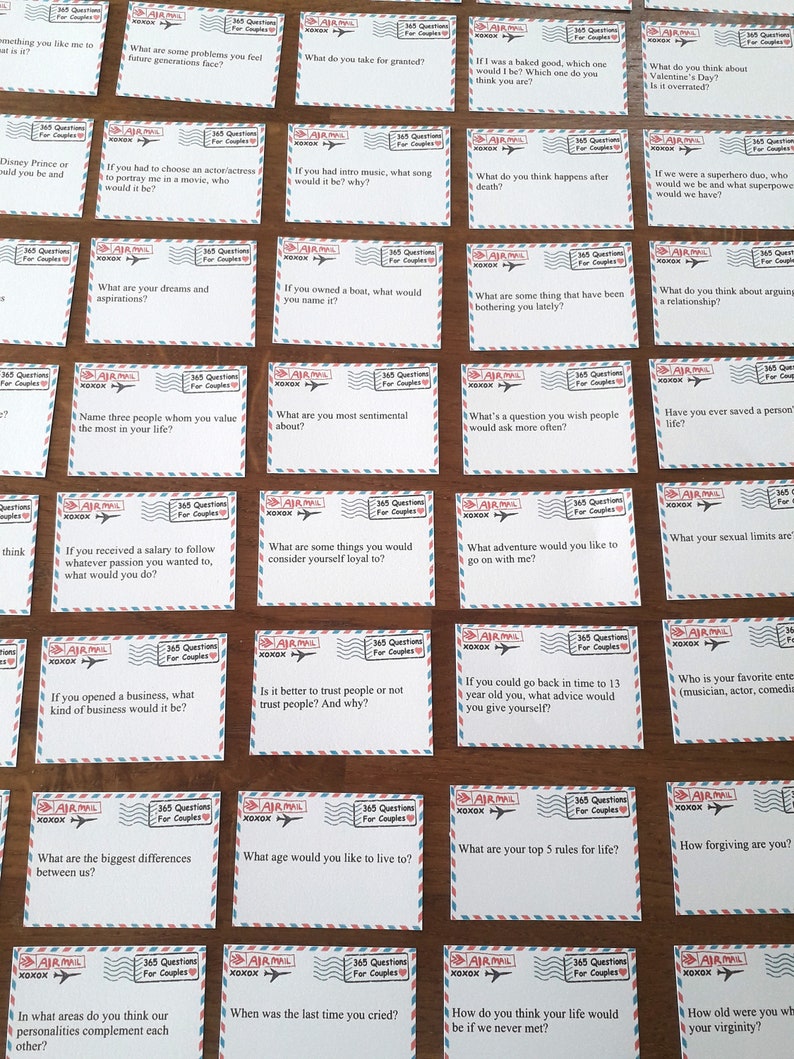 365 Questions
For Couples
omething you like me to
at is it?
AIR MAIL
XOXOX
365 Questions
For Couples
What are some problems you feel
future generations face?
XOXOX
365 Questions
For Couples
What do you take for granted?
AIR MAIL
XOXOX
365 Questions
For Couples
If I was a baked good, which one
would I be? Which one do you
think you are?
AIR MAIL
XOXOX
365 Questions
For Couples
What do you think about
Valentine's Day?
Is it overrated?
365 Questions
For Couples
Disney Prince or
ould you be and
AIR MAIL
XOXOX
365 Questions
For Couples
If you had to choose an actor/actress
to portray me in a movie, who
would it be?
AIR MAIL
XOXOX
365 Questions
For Couples
If you had intro music, what song
would it be? why?
AIR MAIL
XOXOX
365 Questions
For Couples
What do you think happens after
death?
AIR MAIL
XOXOX
365 Questions
For Couples
If we were a superhero duo, who
would we be and what superpowe
would we have?
365 Questions
For Couples
s
AIR MAIL
XOXOX
365 Questions
For Couples
What are your dreams and
aspirations?
AIR MAIL
XOXOX
365 Questions
For Couples
If you owned a boat, what would
you name it?
AIR MAIL
XOXOX
365 Questions
For Couples
What are some thing that have been
bothering you lately?
AIR MAIL
XOXOX
365 Quest
For Coupl
What do you think about arguing
a relationship?
365 Questions
For Couples
e?
AIR MAIL
XOXOX
365 Questions
For Couples
Name three people whom you value
the most in your life?
AIR MAIL
XOXOX
365 Questions
For Couples
What are you most sentimental
about?
AIR MAIL
XOXOX
365 Questions
For Couples
What's a question you wish people
would ask more often?
AIR MAIL
XOXOX
365 Ques
For Coup
Have you ever saved a person'
life?
uestions
ouples
think
AIR MAIL
XOXOX
365 Questions
For Couples
If you received a salary to follow
whatever passion you wanted to,
what would you do?
AIR MAIL
XOXOX
365 Questions
For Couples
What are some things you would
consider yourself loyal to?
AIR MAIL
XOXOX
365 Questions
For Couples
What adventure would you like to
go on with me?
AIR MAIL
XOXOX
365 Q
For Co
What your sexual limits are?
estions
uples
AIR MAIL
XOXOX
365 Questions
For Couples
If you opened a business, what
kind of business would it be?
AIR MAIL
XOXOX
365 Questions
For Couples
Is it better to trust people or not
trust people? And why?
AIR MAIL
XOXOX
365 Questions
For Couples
If you could go back in time to 13
year old you, what advice would
you give yourself?
AIR MAIL
XOXOX
365
For
Who is your favorite ente
(musician, actor, comedia
AIR MAIL
XOXOX
365 Questions
For Couples
What are the biggest differences
between us?
AIR MAIL
XOXOX
365 Questions
For Couples
What age would you like to live to?
AIR MAIL
XOXOX
365 Questions
For Couples
What are your top 5 rules for life?
AIR MAIL
XOXOX
How forgiving are you?
AIR MAIL
XOXOX
365 Questions
For Couples
In what areas do you think our
personalities complement each
other?
AIR MAIL
XOXOX
365 Questions
For Couples
When was the last time you cried?
AIR MAIL
XOXOX
365 Questions
For Couples
How do you think your life would
be if we never met?
AIR MAIL
XOXOX
How old were you wh
your virginity?